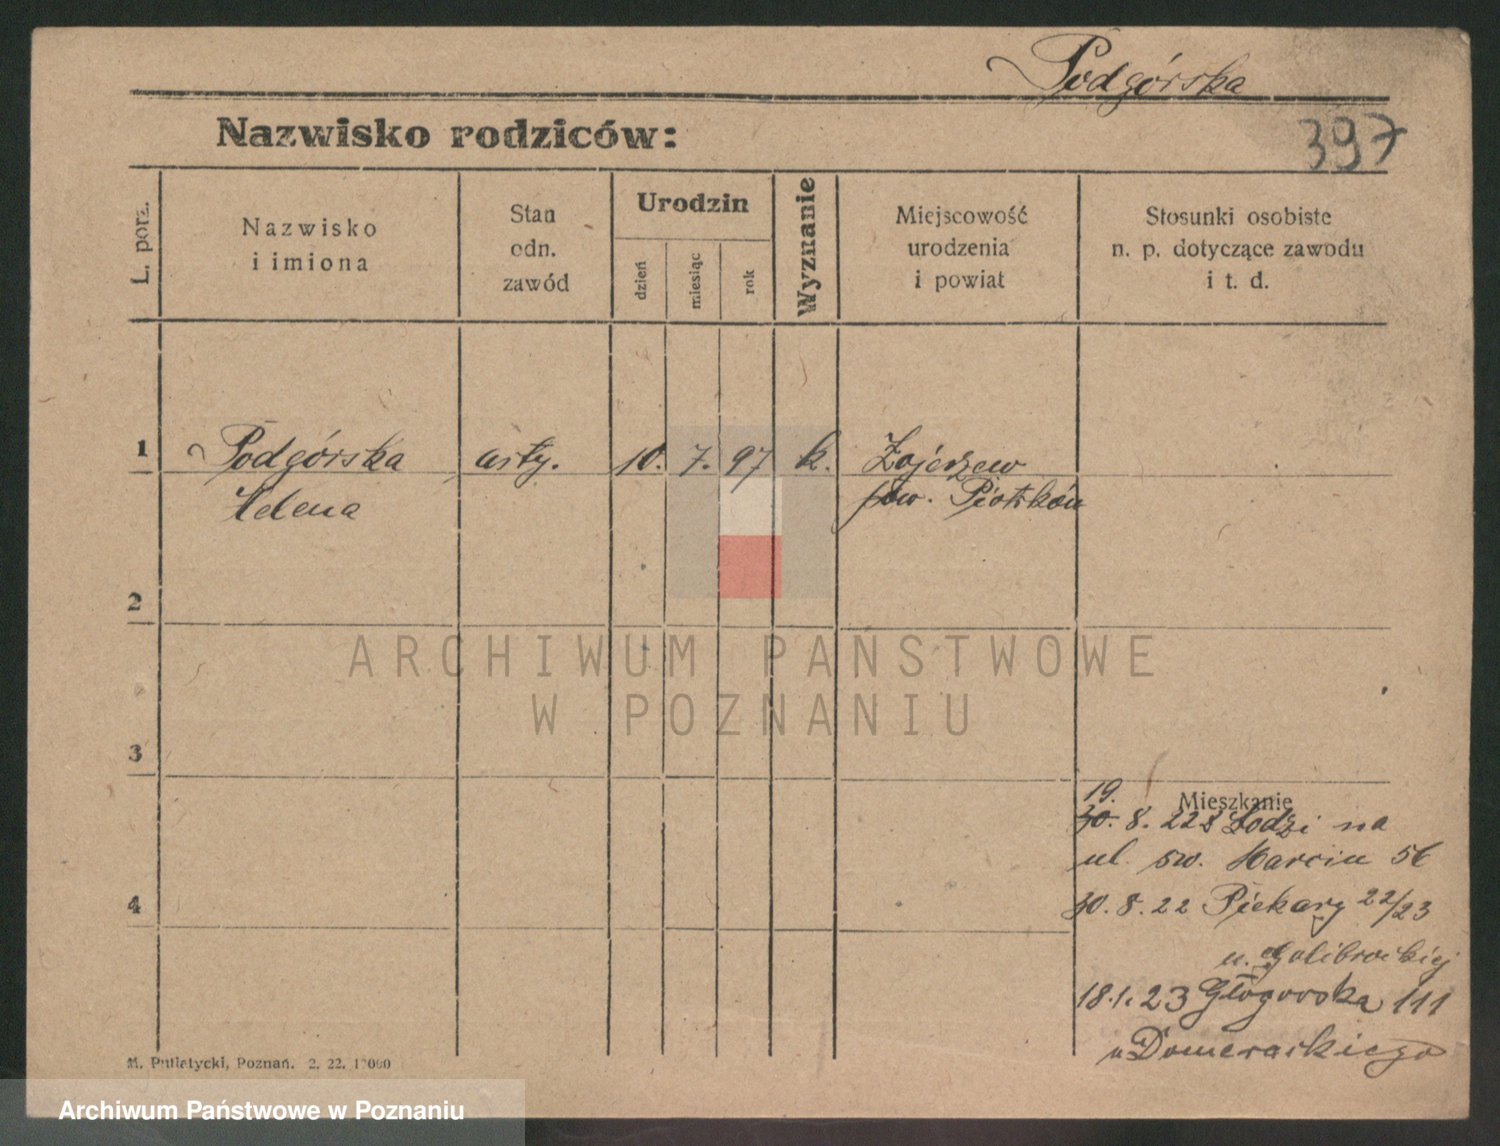 Podgórska
Nazwisko rodziców:
397
L. porz.
Nazwisko
i imiona
Stan
odn.
zawód
Urodzin
dzień
miesiąc
rok
Wyznanie
Miejscowość
urodzenia
i powiat
Stosunki osobiste
n. p. dotyczące zawodu
i t. d.
1
Podgórska
Helena
10. 7. 97
k.
pow. Piotrków
2
3
4
Mieszkanie
19.
30. 8. 22 z Łodzi na
ul. św. Marcin 56
30. 8. 22 Piekary 22/23
u.
18.1.23 Głogowska 111
u Domerackiego
M. Putiatycki, Poznań. 2. 22.
ARCHIWUM PAŃSTWOWE
W POZNANIU
Archiwum Państwowe w Poznaniu